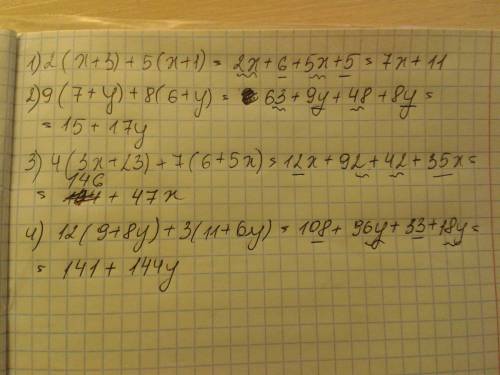 1) 2(x+3)+5(x+1)= 2x+6+5x+5= 7x+11
2) 9(7+y)+8(6+y)= 63+9y+48+8y=
= 15+17y
3) 4(3x+23)+7(6+5x)= 12x+92+42+35x=
146
= + 47x
4) 12(9+8y)+3(11+6y)= 108+96y+33+18y=
= 141+144y